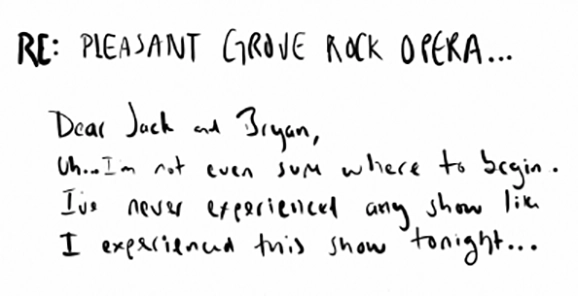 RE: PLEASANT GROVE ROCK OPERA...
Dear Jack and Bryan,
Uh...I'm not even sure where to begin.
I've never experienced any show like
I experienced this show tonight...